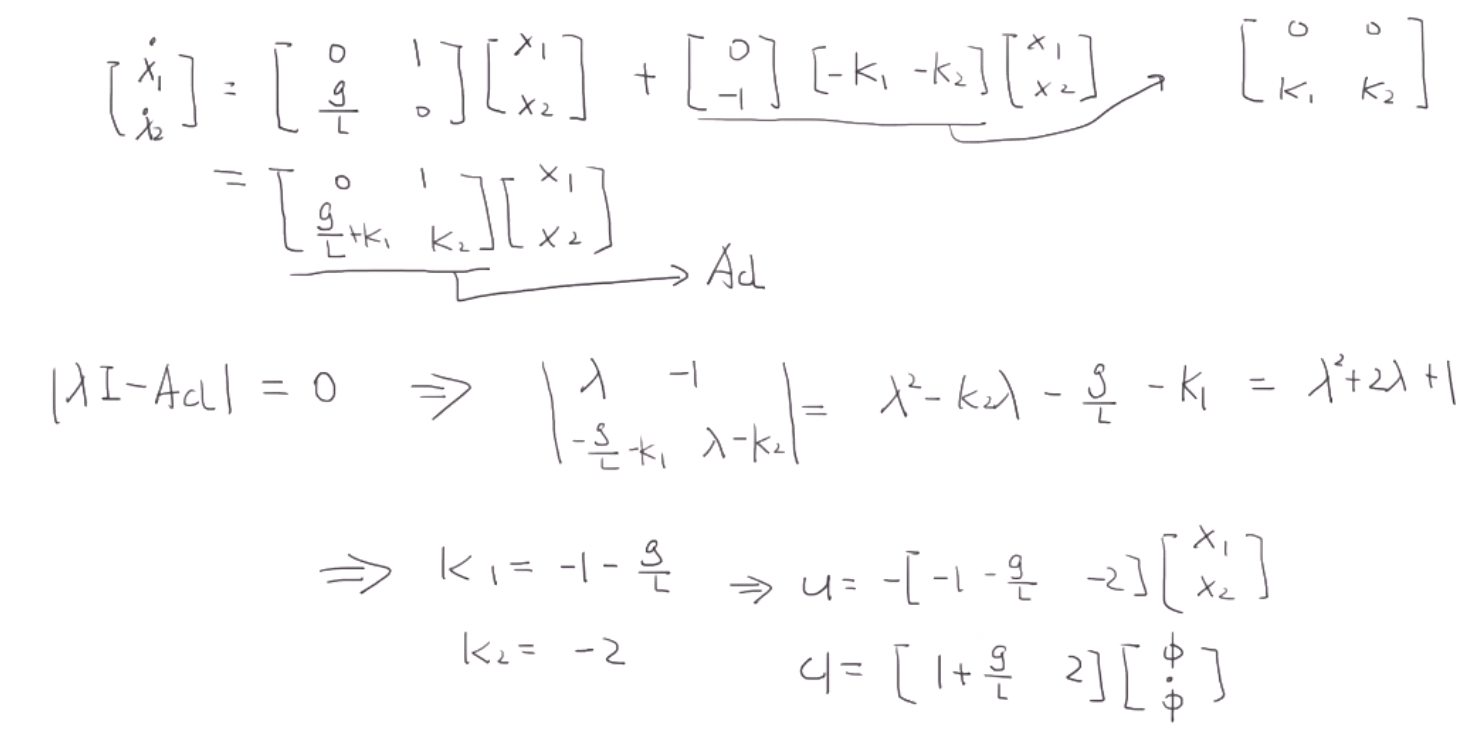 [ẋ₁ ẋ₂] = [0 1; g/L 0] [x₁ x₂] + [0; -1] [-k₁ -k₂] [x₁ x₂] → [0 0; k₁ k₂]
= [0 1; g/L+k₁ k₂] [x₁ x₂]
→ Acl
|λI-Acl| = 0 ⇒ |λ -1; -g/L-k₁ λ-k₂| = λ²-k₂λ - g/L - k₁ = λ²+2λ+1
⇒ k₁ = -1 - g/L ⇒ u = -[-1 - g/L -2] [x₁ x₂]
k₂ = -2 u = [1+ g/L 2] [ϕ ϕ̇]